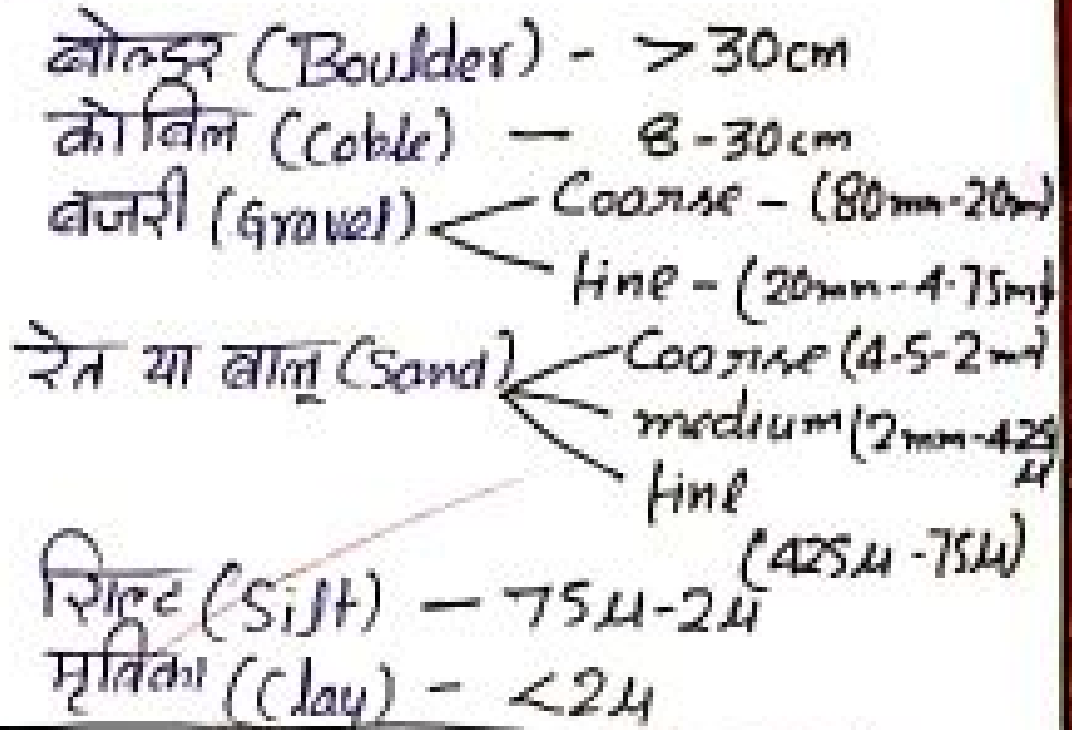 बोल्डर (Boulder) - > 30cm
कोबिल (Coble) — 8-30cm
बजरी (Gravel) Coarse - (80mm-20m)
fine - (20mm-4.75m)
रेत या बालू (Sand) Coarse (4.5-2mm)
medium (2mm-425μ)
fine
(425μ-75μ)
सिल्ट (Silt) — 75μ-2μ
मृतिका (Clay) - <2μ